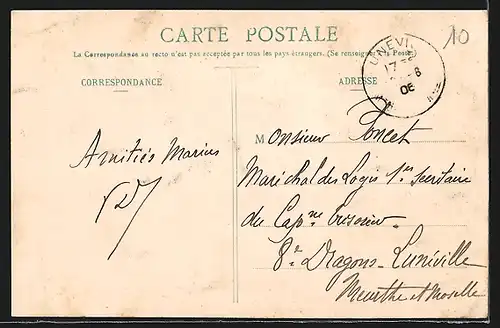 CARTE POSTALE
La Correspondance au recto n'est pas acceptée par tous les pays étrangers. (Se renseigner à la Poste)
CORRESPONDANCE
ADRESSE
10
LUNEVILLE
08
Amitiés Marius
Monsieur Poncet
Maréchal des Logis 1er Secrétaire
du Capne Trésorier
8e Dragons. Lunéville
Meurthe et Moselle